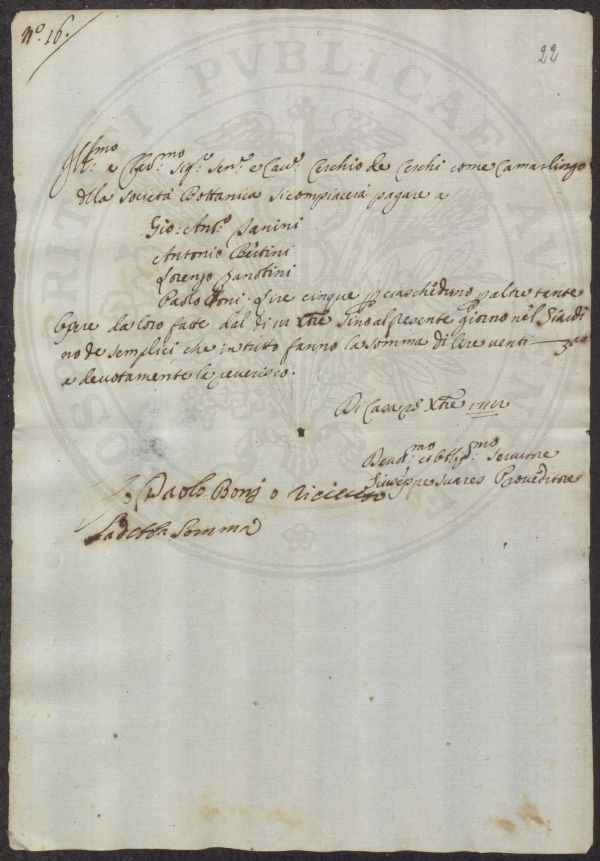 n.o 16.
22
Ill.mo e Clar.mo Sig.r Sen.r e Cav.r Cerchio de Cerchi come Camarlingo
della Società Bottanica si compiacerà pagare a
Gio: Ant.o Nanini
Antonio Bettini
Lorenzo Zanobini
Paolo Boni Lire cinque p ciascheduno p altre tante
Opere da loro fatte dal di Xbre sino al presente giorno nel Giardi
no de semplici che in tutto fanno la somma di Lire venti
e devotamente la reverisco.
Di Casa Xbre
Devot.mo et Obblig.mo Servitore
Giuseppe Suares Proveditore
Io Paolo Bonj o riceuto
La detta Somma
SPIRITI PVBLICAE